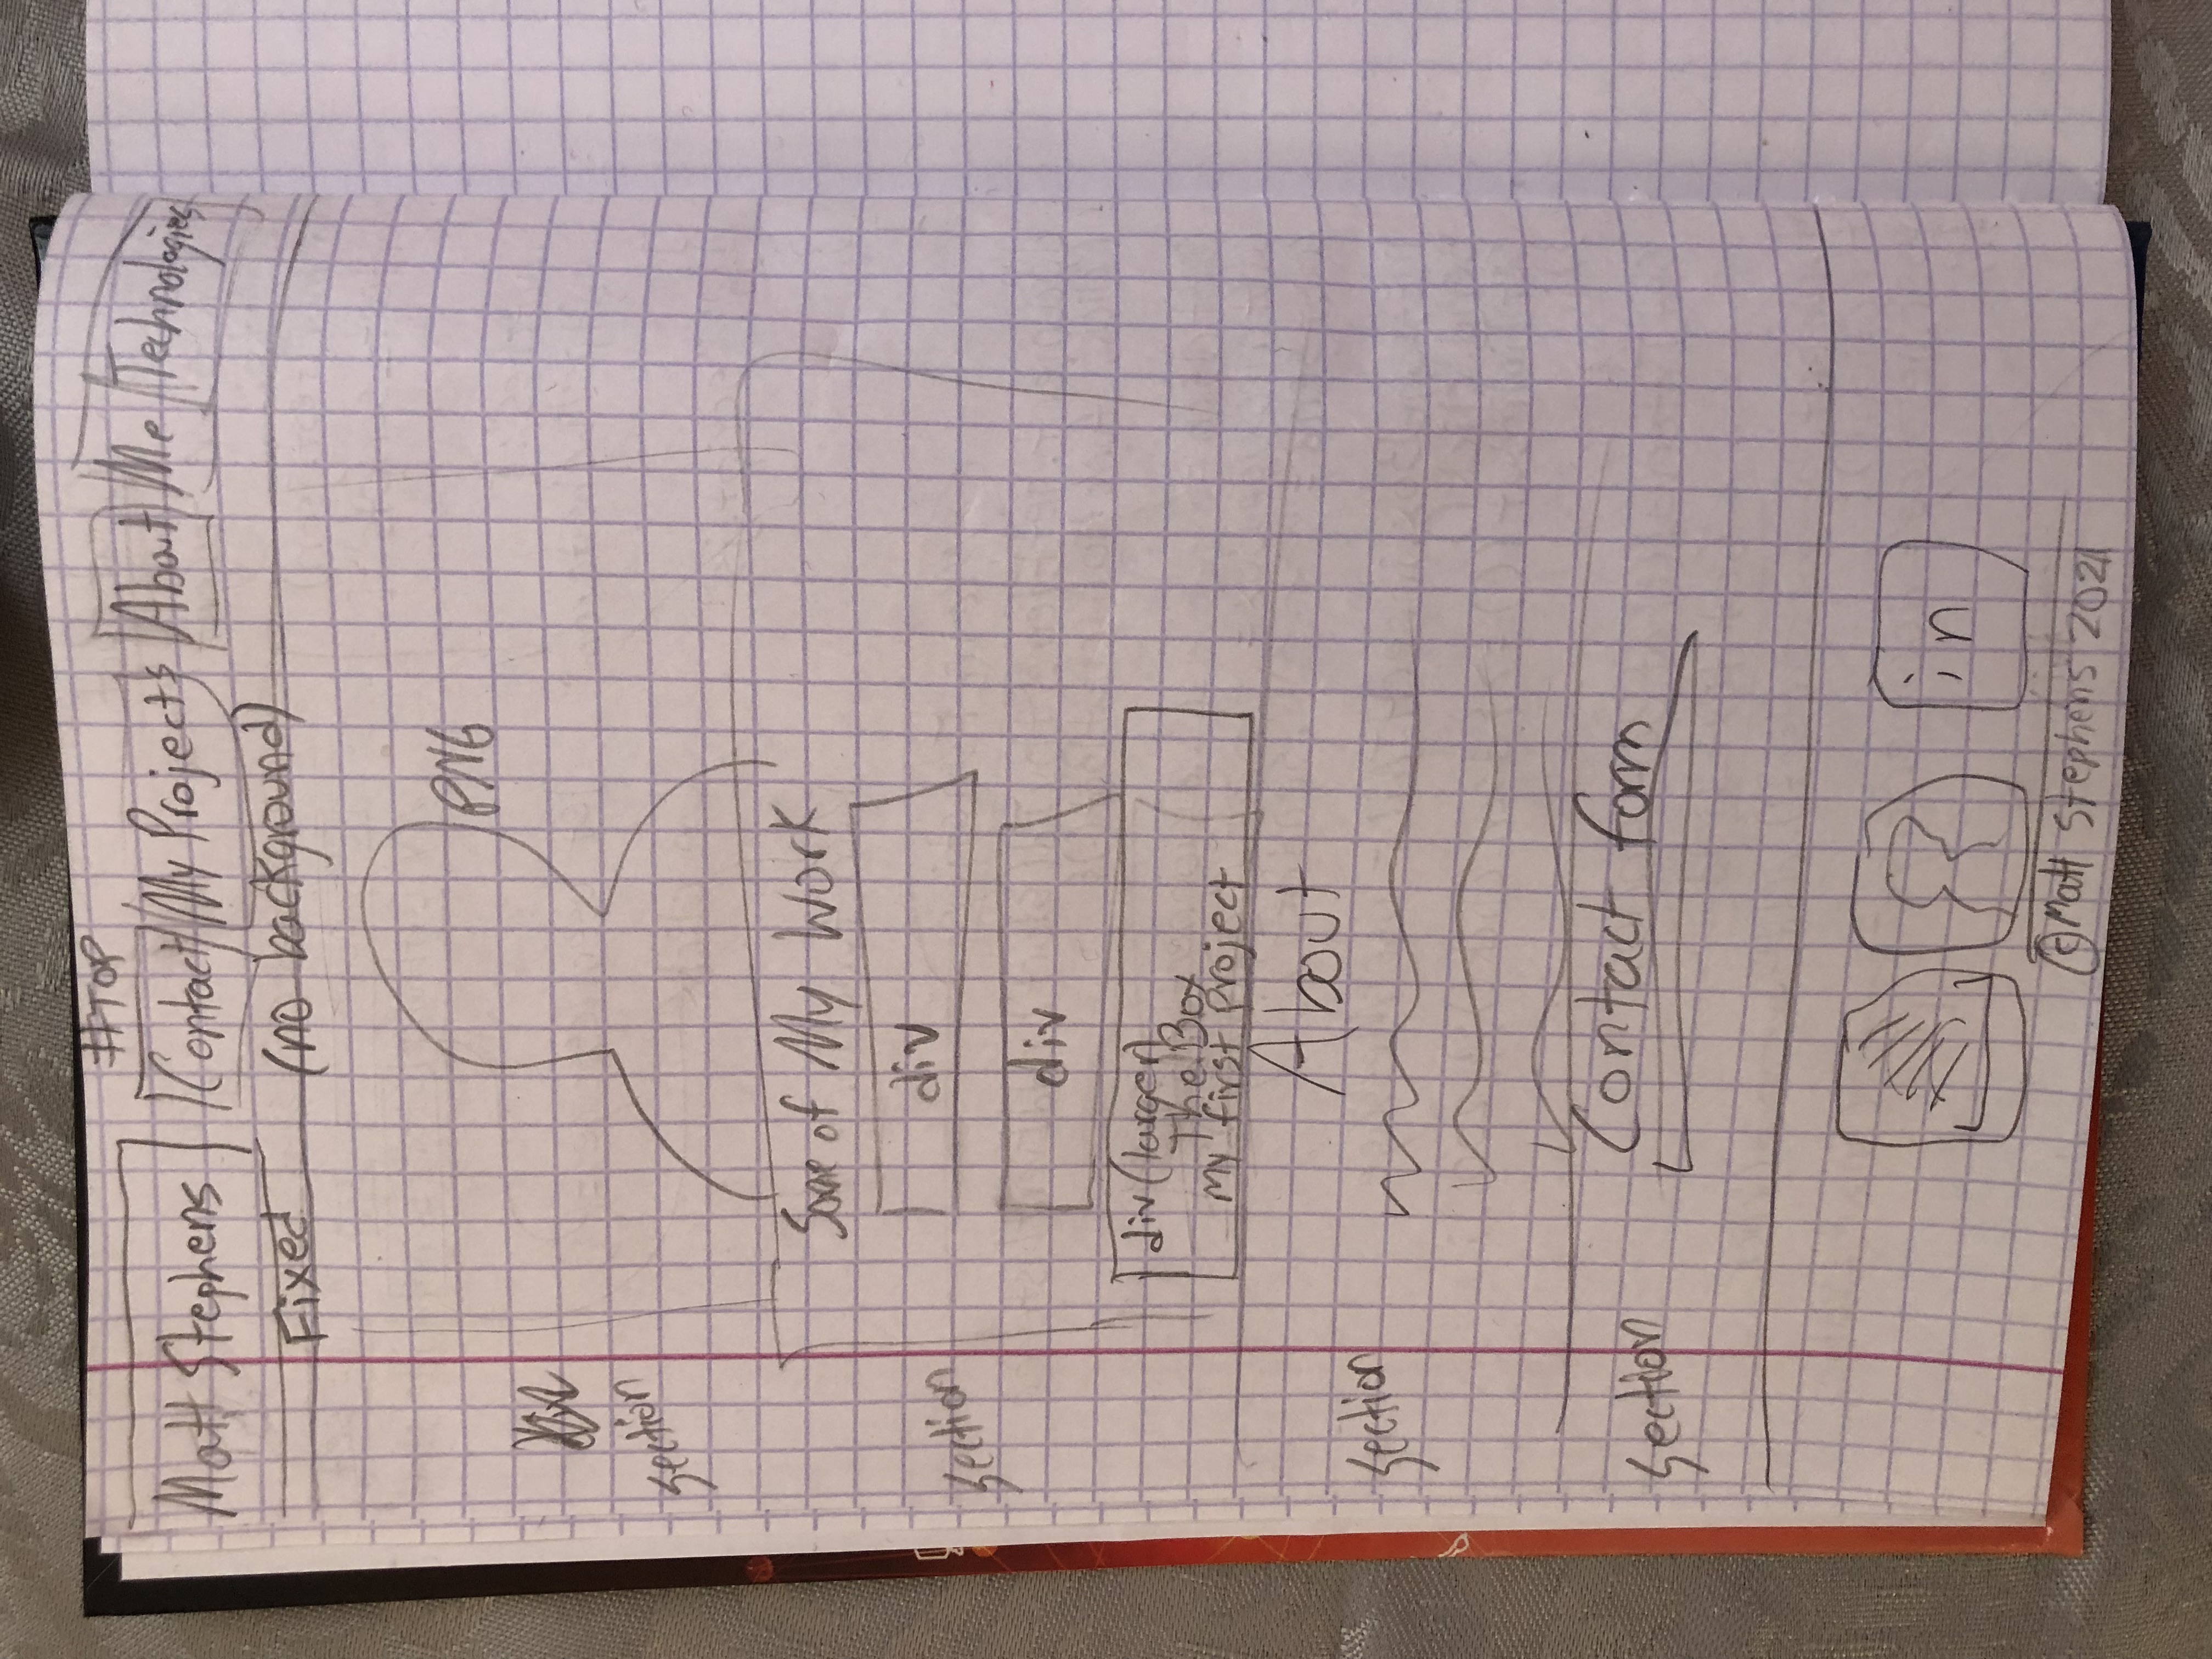 #TOP
Matt Stephens Contact My Projects About Me Technologies
Fixed (no background)
PNG
section
Some of My Work
div
section
div
div (larger)
The Box
My first project
About
section
Contact form
section
in
©Matt Stephens 2021